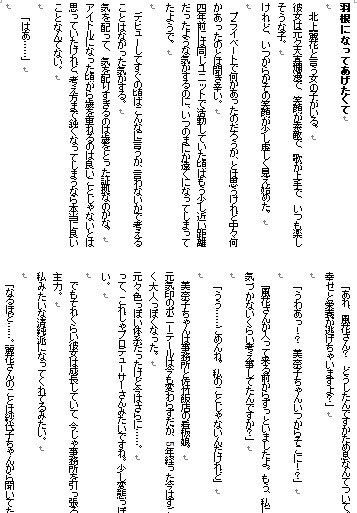 羽根になってあげたくて
北上麗花と言う女の子がいる。
彼女は元々天真爛漫で、笑顔が素敵で、歌が上手で、いつも楽し
そうな子。
けれど、いつからかその笑顔が少し虚しく見え始めた。
プライベートで何かあったのだろうか、とは思うけれど中々何
かあったのかは聞き辛い。
四年前に同じユニットで活動していた頃はもう少し近い距離
だったような気がするのに、いつのまにか遠くになってしまって
たようで。
デビューしてすぐの頃はこんなに言うか、言わないかで考える
ことはなかった気がする。
気を配って、気を配りすぎるのは歳をとった証拠なのかな。
アイドルになった頃から歳を重ねるのは良いことじゃないとは
思っていたけれど、考え方まで鈍くなってしまうなら本当に良い
ことなんてない。
「はぁ……」
「あれ、風花さん？　どうしたんですかため息なんてついて、
幸せと栄養が逃げちゃいますよ？」
「うわあっー？　美奈子ちゃんいつからそこに！？」
「風花さんが入って来る前からずっといましたよ。もう、私に
気づかないくらい考え事してたんですか？」
「うう……ごめんね。私のことじゃないんだけれど」
美奈子ちゃんは事務所と佐竹飯店の看板娘。
元気印のポニーテールは今も変わらずだが、5年経った今はすご
く大人っぽくなった。
元々色っぽい体系だったけど今はさらに……。
って、これじゃプロデューサーさんみたいですね。少し変態っぽ
い。
でもそれくらい彼女は成長していて、今じゃ事務所を引っ張る
主力。
私みたいな清純派になってくれてるみたい。
「なるほど……。麗花さんのことは茜子ちゃんから聞いてた